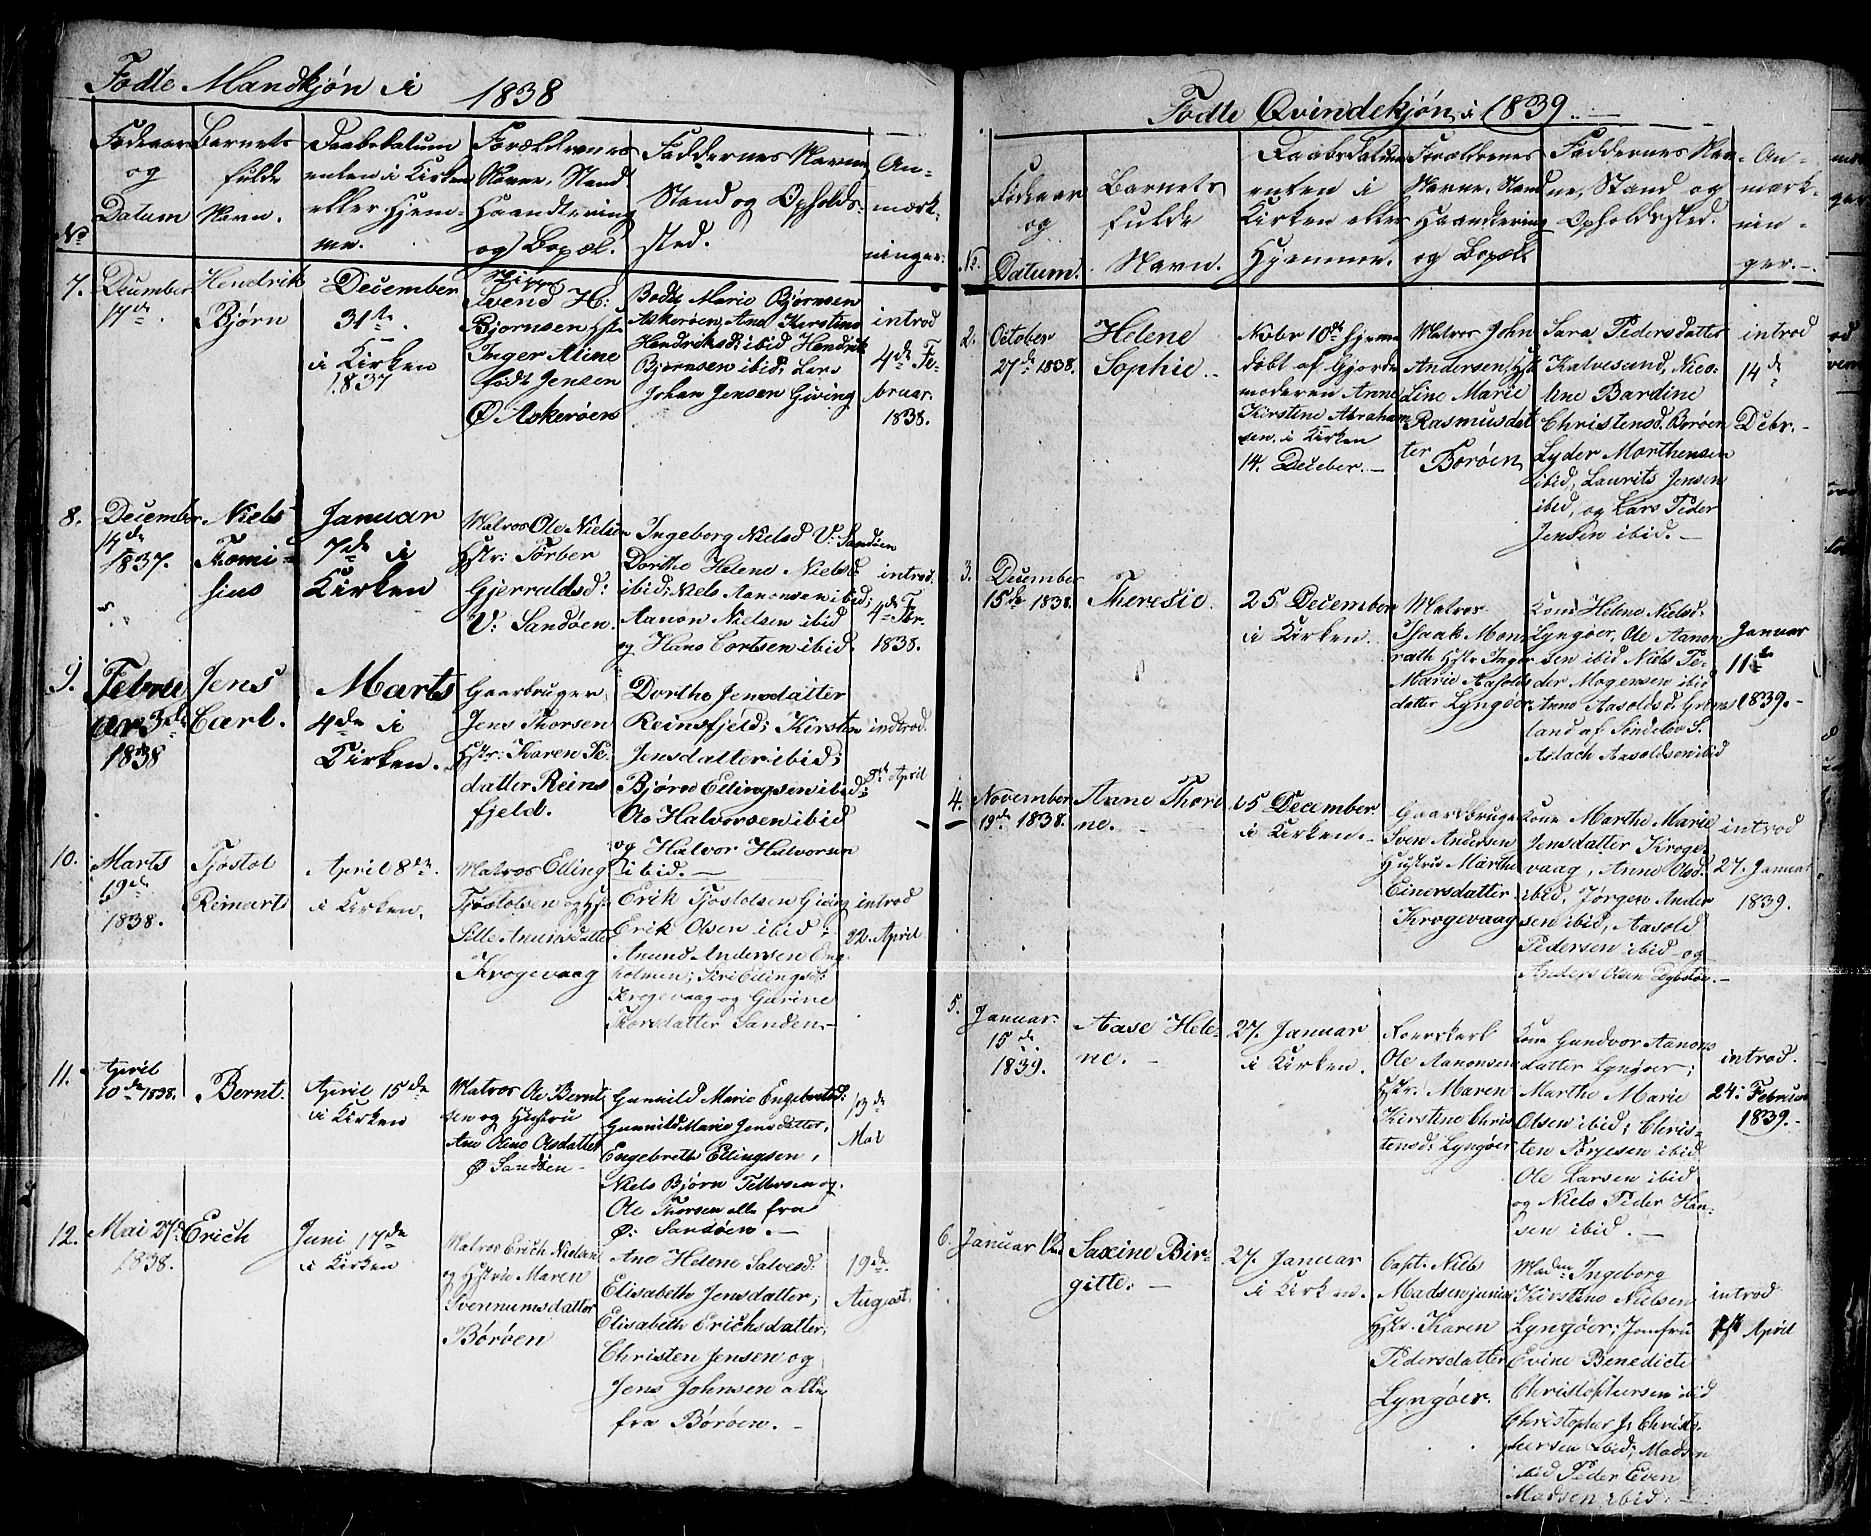 Fødte Mandkjøn i 1838
No
Fødeaar
og
Datum
Barnets
fulde
Navn.
Daabsdatum
enten i Kirken
eller Hjem-
me.
Forældrenes
Navne, Stand
Haandtering
og Bopæl.
Faddernes Navne,
Stand og Opholds-
sted.
An-
mærk-
ninger.
7.
December
Hendrik
Bjørn
December
31te
i Kirken
1837
Svend H:
Bjørnsen Hst:
Inger Aline
født Jensen
Ø Askerøen
Bodil Marie Bjørnsen
Askerøen, Ane Kirstine
Hendriksd: ibid Hendrik
Bjørnsen ibid; Lars
Johan Jensen Giving
introd
4de Fe-
bruar.
1838.
8.
December
1837.
Niels
Thomi-
sius
Januar
7de i
Kirken
Matros Ole Nielsen
Hstr: Torber
Gjerruldsd:
V: Sandøen.
Ingeborg Nielsd V: Sandøen
Dorthe Helene Nielsd
ibid; Niels Aanonsen ibid;
Aanon Nielsen ibid
og Hans Cortsen ibid.
introd.
4de Febr.
1838.
9.
Febru
ar 3de
1838
Jens
Carl.
Marts
4de i
Kirken.
Gaarbruger
Jens Thorsen
Hstr: Karen Pe-
datter Reins
fjeld.
Dorthe Jensdatter
Reinsfjeld; Kirsten
Jensdatter ibid;
Bjørn Ellingsen ibid;
As Halvorsen ibid
og Halvor Halvorsen
ibid.—
indtrod.
April
10.
Marts
19de
1838.
Tjostol
Reinart
April 8de.
i Kirken.
Matros Elling
Tjostolsen og Hst:
Sille Anunsdatter
Krogevaag
Erik Tjostolsen Giving
Erik Olsen ibid;
Anund Andersen Eng-
holmen; Siri Ellingsd:
Krogevaag og Gurine
Thorsdatter Sanden.—
introd
22. April
11.
April
10de 1838.
Bernt.
April 15de
i Kirken
Matros Ole Bernt
sen og Hustru
Ane Oline Olsdatter
Ø Sandøen
Gunnild Marie Engebretsd:
Gunnild Marie Jensdatter,
Engebreth Ellingsen,
Niels Bjørn Tellefsen og
Ole Thorsen alle fra
Ø: Sandøen.—
13de
Mai
12.
Mai 27de
1838.
Erich
Juni 17de
i Kirken
Matros Erich Nielsen
og Hstrue Maren
Svennumsdatter
Børøen
Ane Helene Salvesd:
Elisabeth Jensdatter;
Elisabeth Erichsdatter;
Christen Jensen og
Jens Johnsen alle
fra Børøen.—
19de
August.
Fødte Qvindekjøn i 1839.
No.
Fødeaar
og
Datum.
Barnets
fulde
Navn.
Daabsdatum
enten i
Kirken eller
Hjemme.
Forældrenes
Navne, Stand
Haandtering
og Bopæl.
Faddernes Nav-
ne, Stand og
Opholdssted.
An-
mærk-
nin-
ger.
2.
October
27de 1838.
Helene
Sophie.
Nobr 10de hjemme
døbt af Gjorde
moderen Anne
Kirstine Abraham
sen, i Kirken
14. Deceber.—
Matros John
Andersen, Hst
Line Marie
Rasmusdat
ter
Borøen
Sara Pedersdatter
Kalvesund, Nico-
line Bardine
Christensd. Borøen
Lyder Morthensen
ibid, Laurits Jensen
ibid, og Lars Peder
Jensen ibid.—
introd
14de
Debr.—
3.
December
15de 1838.
Theresie.
25 December
i Kirken.
Matros
Isaak Mon-
rath Hstr Inger
Marie Aasolds
datter Lyngøer
Kone Helene Nielsd:
Lyngøer, Ole Aanon
sen ibid Niels Pe-
der Mogensen ibid
Anne Aasoldsd: Grøns
land af Søndeløv S.
Aslach Aasoldsen ibid
Januar
11te
1839.—
4.
November
19de 1838.
Anne Thori
ne.
25 December
i Kirken.—
Gaardbruger
Sven Andersen
Hustrue Marthe
Einersdatter
Krogevaag
Kone Marthe Marie
Jensdatter Kroge-
vaag, Anne Olsd.
ibid. Jørgen Ander
sen ibid, Aasold
Pedersen ibid og
Anders Olsen
introd
27. Januar
1839.
5.
Januar
15de
1839.
Aase Hele-
ne.—
27. Januar
i Kirken.
Ole Aanonsen
Hstr. Maren
Kirstine Chris
tensd: Lyngøer
Kone Gundvor Aanons
datter Lyngøer;
Marthe Marie
Olsen ibid; Chris-
ten Torjesen ibid
Ole Larsen ibid
og Niels Peder Han-
sen ibid.—
introd.
24: Februar
1839.—
6.
Januar
Saxine Bir-
gitte.—
27. Januar
i Kirken.
Capt. Niels
Madsen junior
Hstr. Karen
Pedersdatter
Lyngøer.
Madm Ingeborg
Kirstine Nielsen
Lyngøer; Jomfru
Evine Benedicte
Christophersen ibid
Christopher J: Christo-
phersen ibid; Madsen
ibid Peder Even
Madsen ibid.—
introd
1ste April